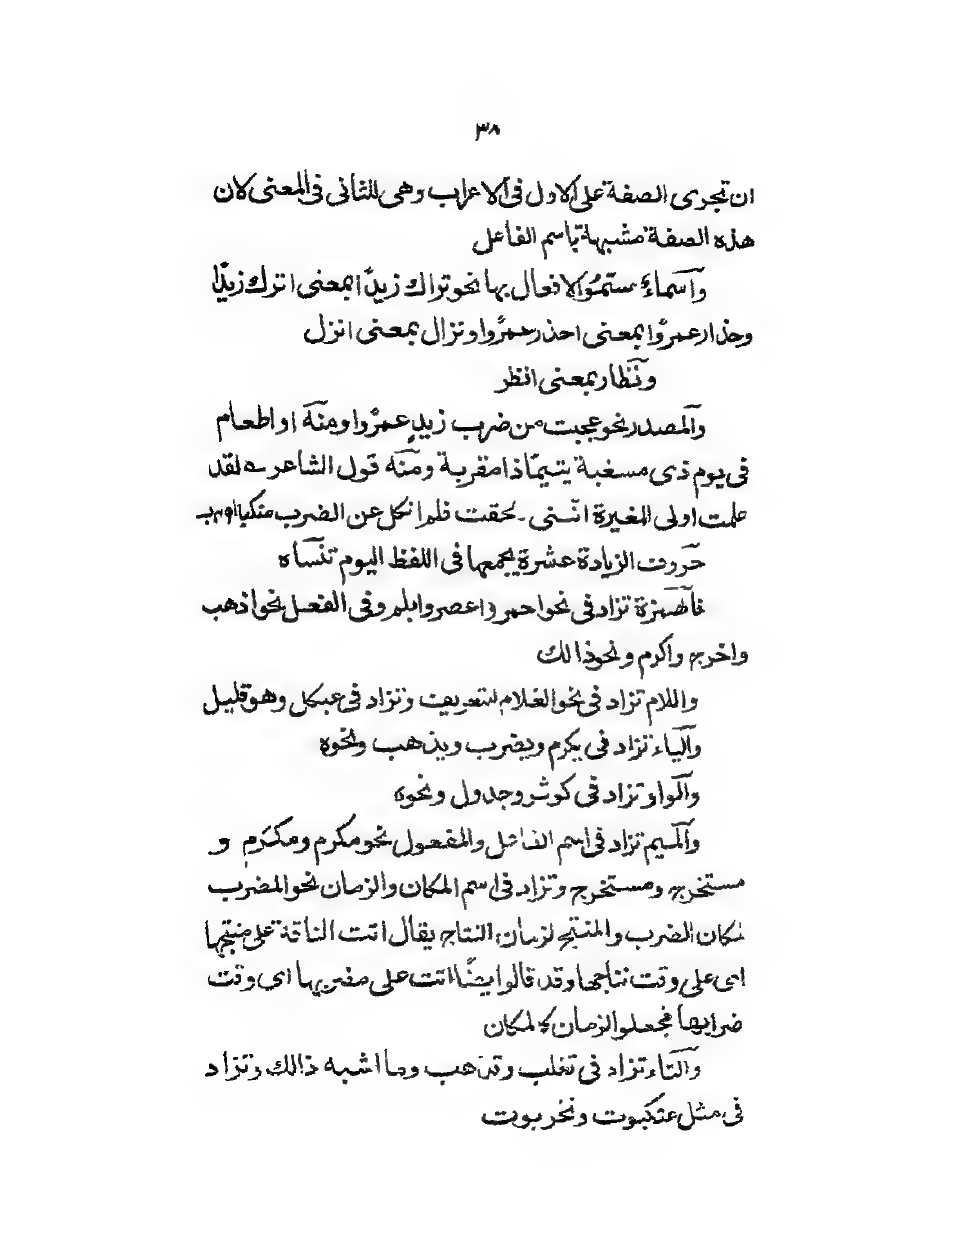 ٣٨
ان تجرى الصفة على الاول فى الاعراب وهى للثانى فى المعنى لان
هذه الصفة مشبهة باسم الفاعل
وأسماءٌ سمّوا الافعال بها نحو تراك زيدًا بمعنى اترك زيدًا
وحذار عمرًوا بمعنى احذر عمرًوا ونزال بمعنى انزل
ونظار بمعنى انظر
والمصدر نحو عجبت من ضرب زيدٍ عمرًوا ومنه او اطعام
فى يوم ذى مسغبة يتيمًا ذا مقربة ومنه قول الشاعر لقد
علمت اولى المغيرة انّنى ـ لحقت فلم انكل عن الضرب
حروف الزيادة عشرة يجمعها فى اللفظ اليوم تنساه
فالهمزة تزاد فى نحو احمر واعصر وابلم وفى الفعل نحو اذهب
واخرج واكرم ونحو ذالك
واللام تزاد فى نحو الغلام لتعريف وتزاد فى عبدل وهو قليل
والياء تزاد فى يكرم ويضرب ويذهب ونحوه
والواو تزاد فى كوثر وجدول ونحوه
والميم تزاد فى اسم الفاعل والمفعول نحو مكرم ومكرَم و
مستخرج ومستخرج وتزاد فى اسم المكان والزمان نحو المضرب
لمكان الضرب والمنتج لزمان النتاج يقال اتت الناقة على منتجها
اى على وقت نتاجها وقد قالوا ايضًا اتت على مضربها اى وقت
ضرابها فجعلوا الزمان كالمكان
والتاء تزاد فى تغلب وتذهب وما اشبه ذالك وتزاد
فى مثل عنكبوت ونخربوت